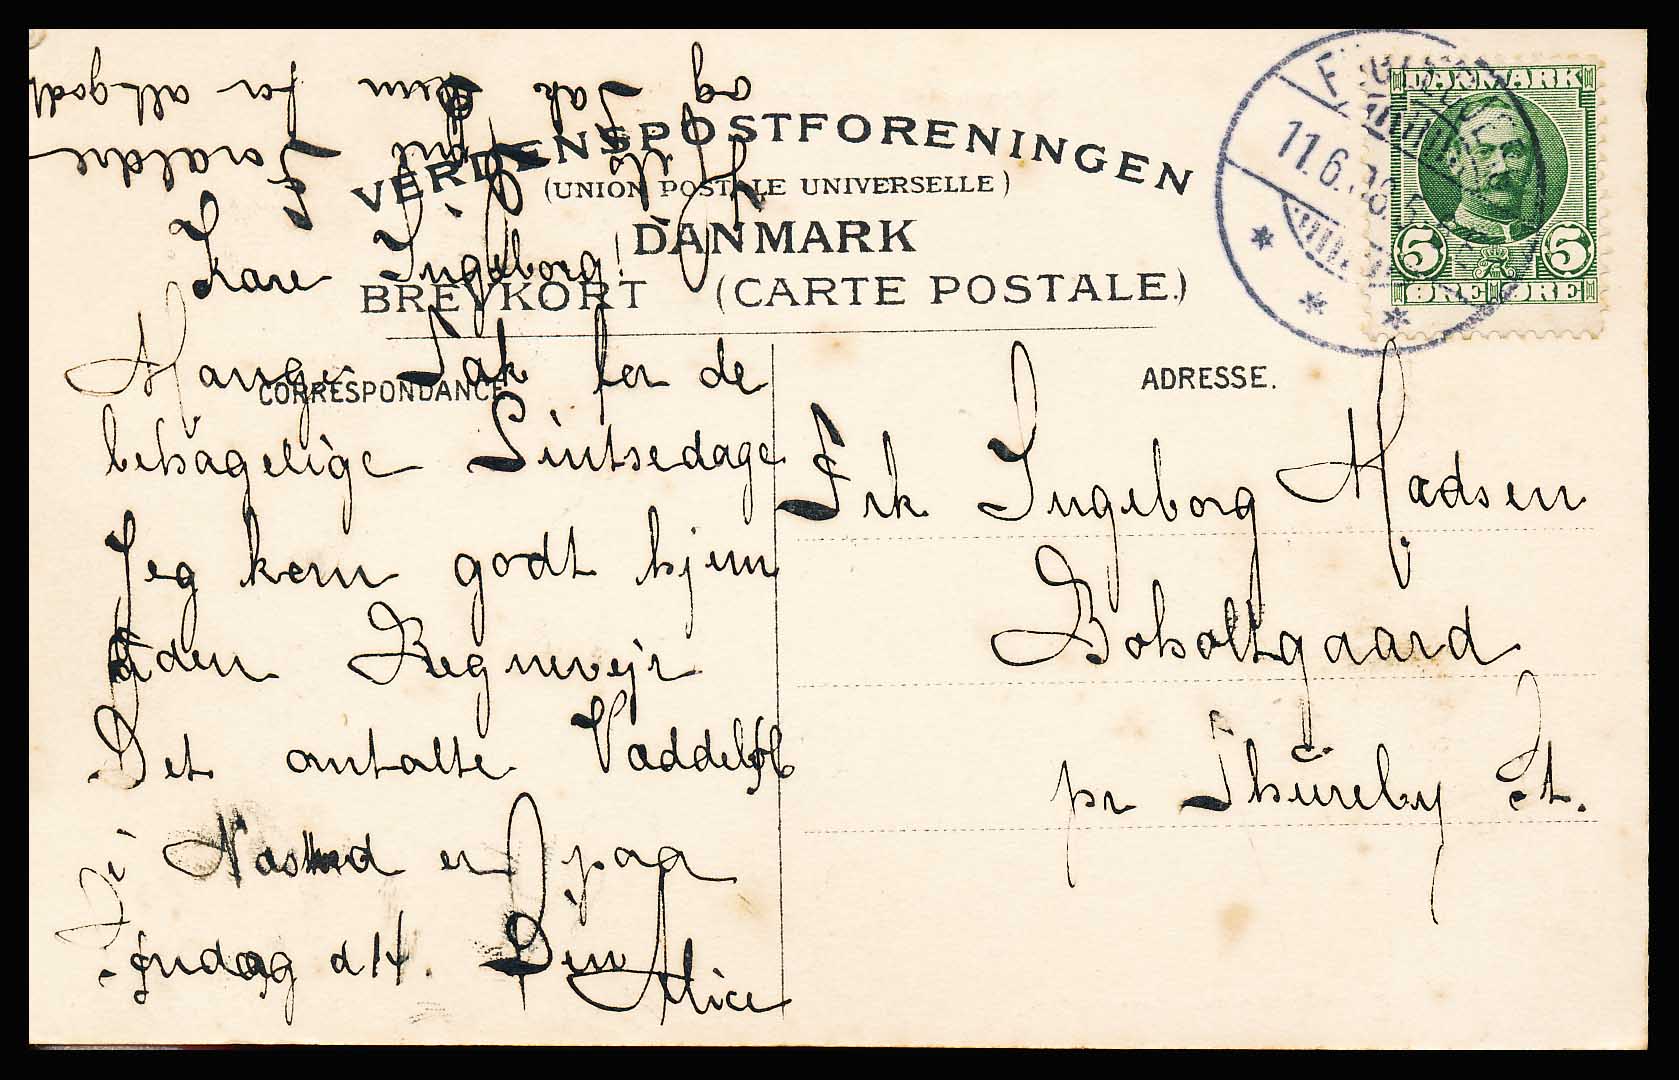 VERDENSPOSTFORENINGEN
(UNION POSTALE UNIVERSELLE)
DANMARK
BREVKORT (CARTE POSTALE.)
CORRESPONDANCE
ADRESSE.
DANMARK
5 5
ØRE ØRE
11.6.
Kære Ingeborg!
Mange Tak for de
behagelige Pintsedage
Jeg kom godt hjem
uden Regnvejr
Det omtalte Væddeløb
i Næstved er paa
Søndag d 14. Din
Alice
Hils dine Foraldre
og Tak dem for alt godt
Frk Ingeborg Madsen
Boholtgaard
pr Thureby St.